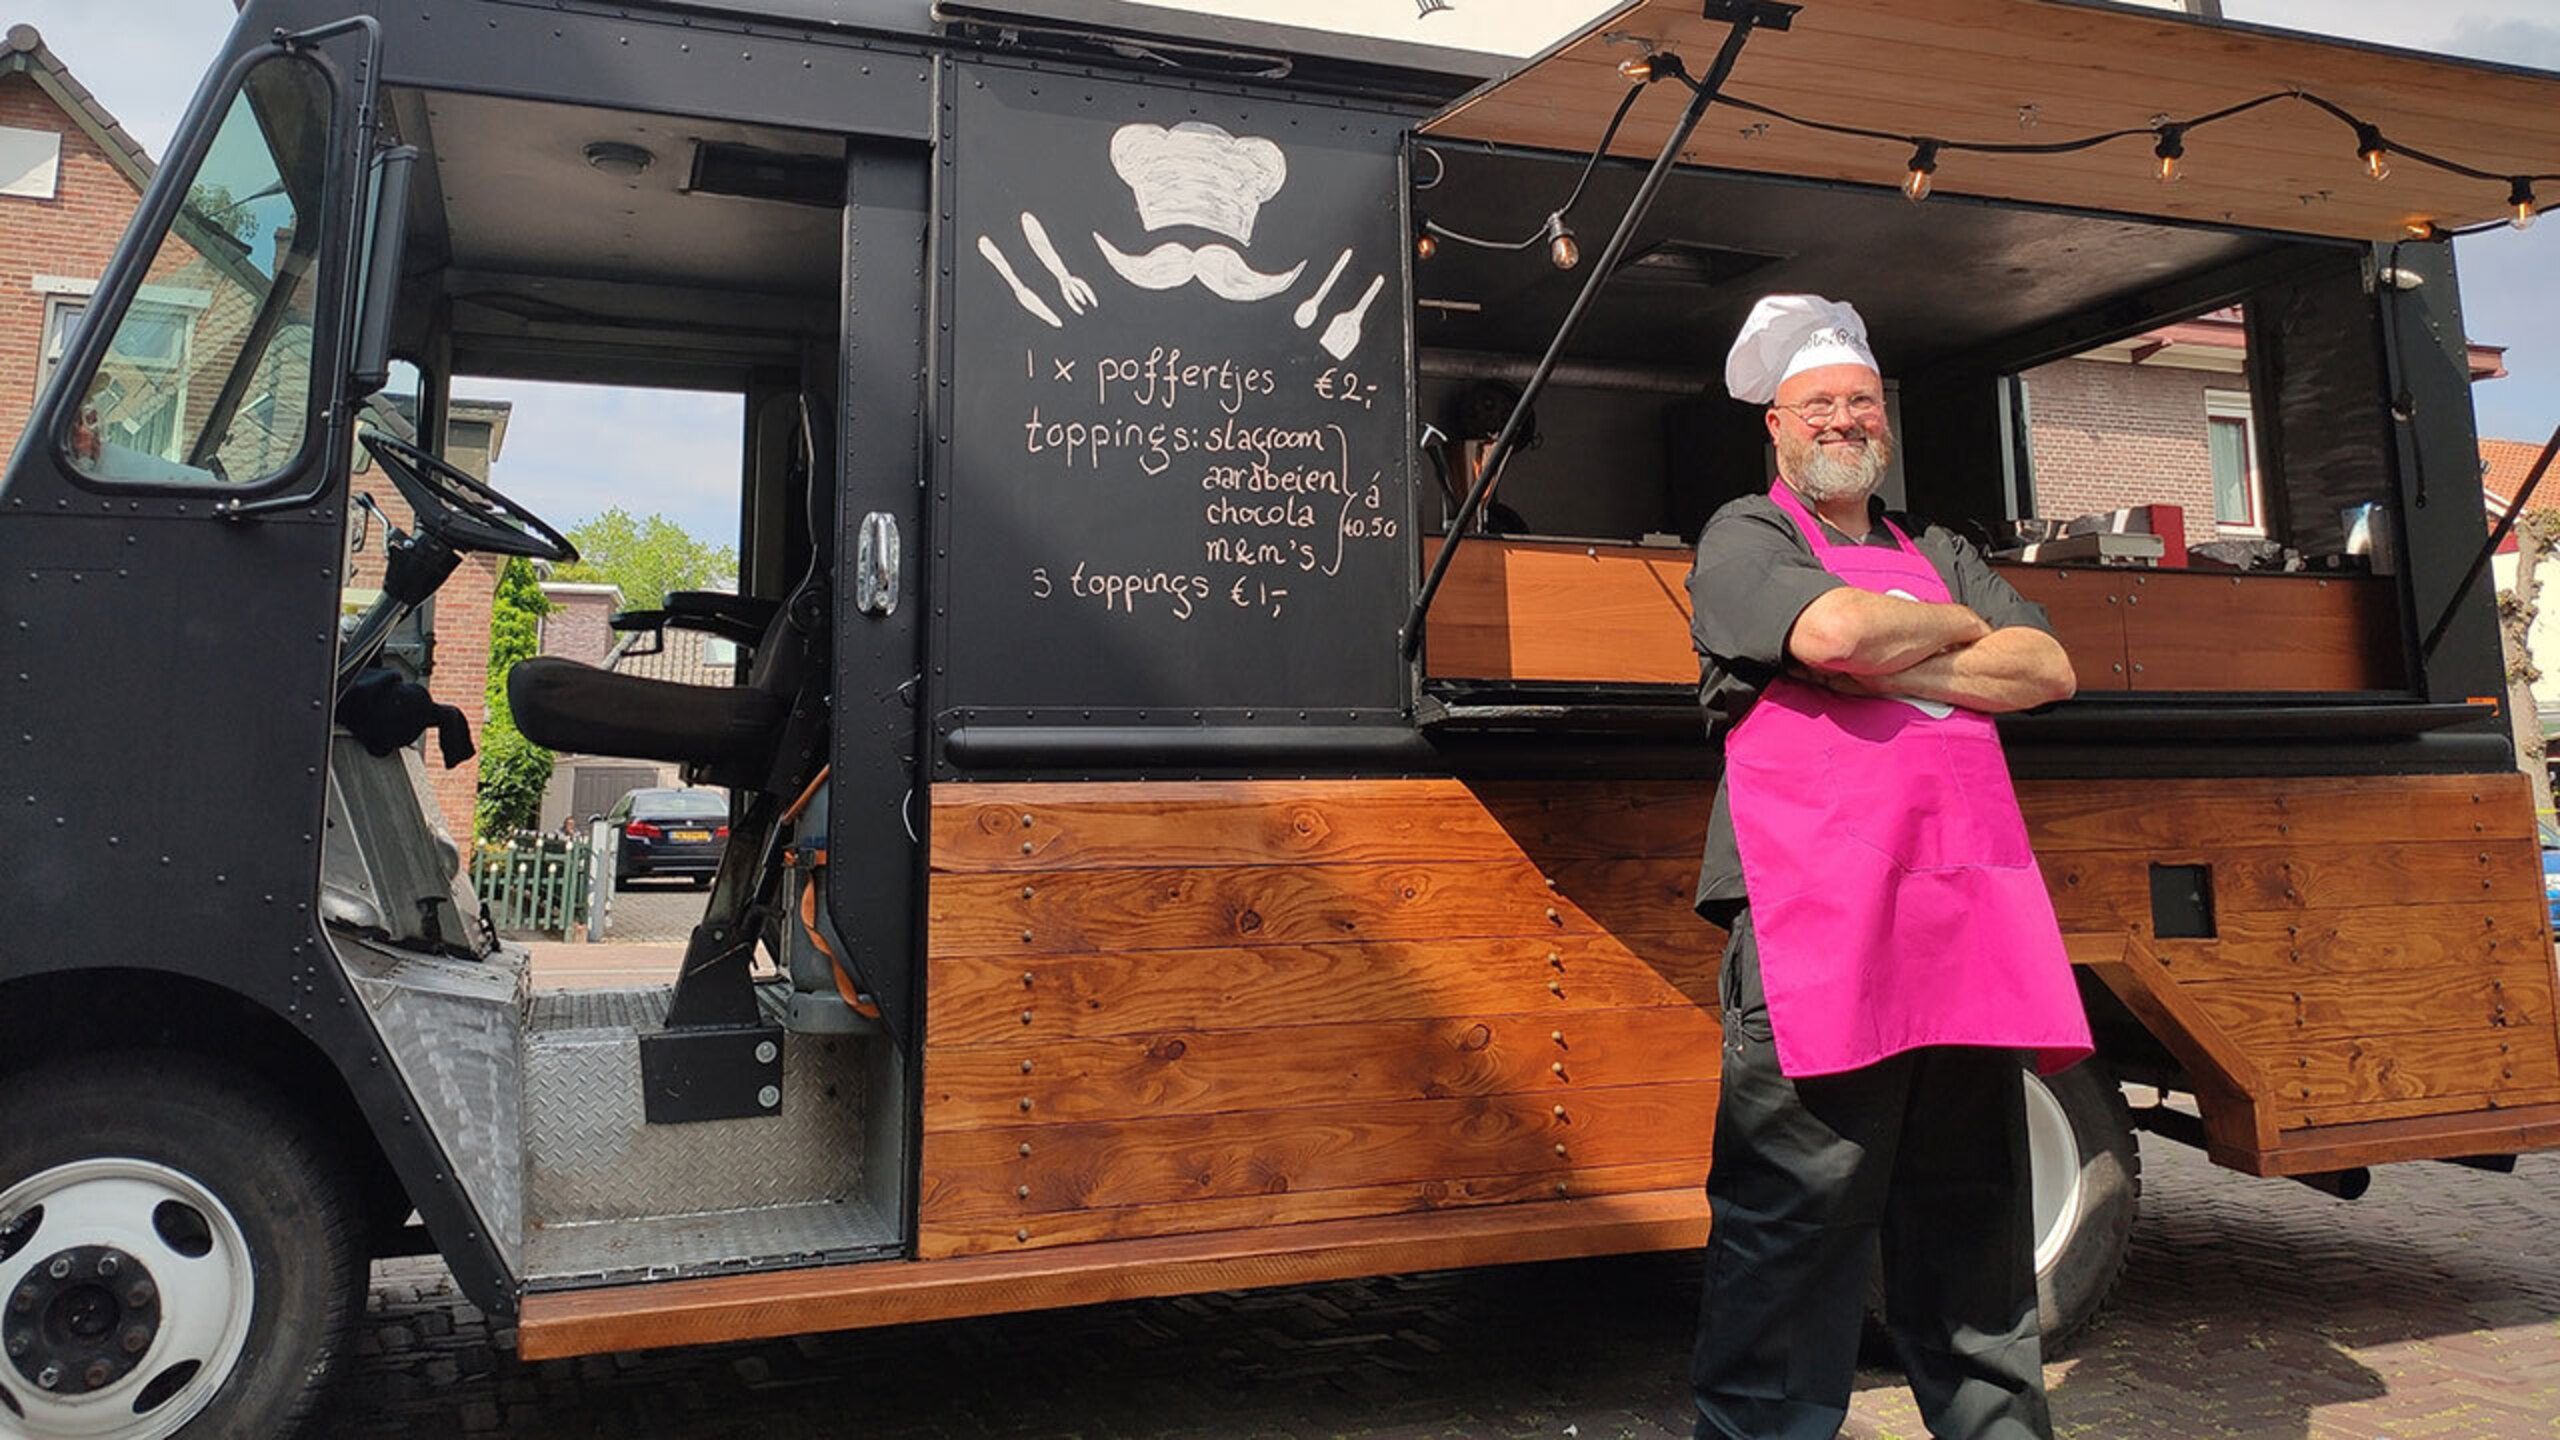 1 x poffertjes €2,-
toppings: slagroom
aardbeien
chocola
m&m's
á
€0.50
3 toppings €1,-